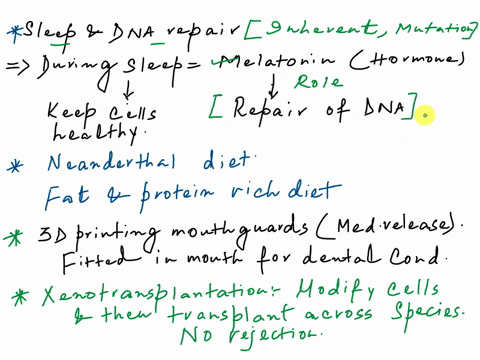 * Sleep & DNA repair [Inherent, Mutation]
=> During Sleep = Melatonin (Hormone)
Role
Keep cells healthy.
[Repair of DNA].
* Neanderthal diet.
Fat & protein rich diet
* 3D printing mouthguards (Med. release).
Fitted in mouth for dental Cond.
* Xenotransplantation:- Modify Cells
& then transplant across Species.
No rejection.